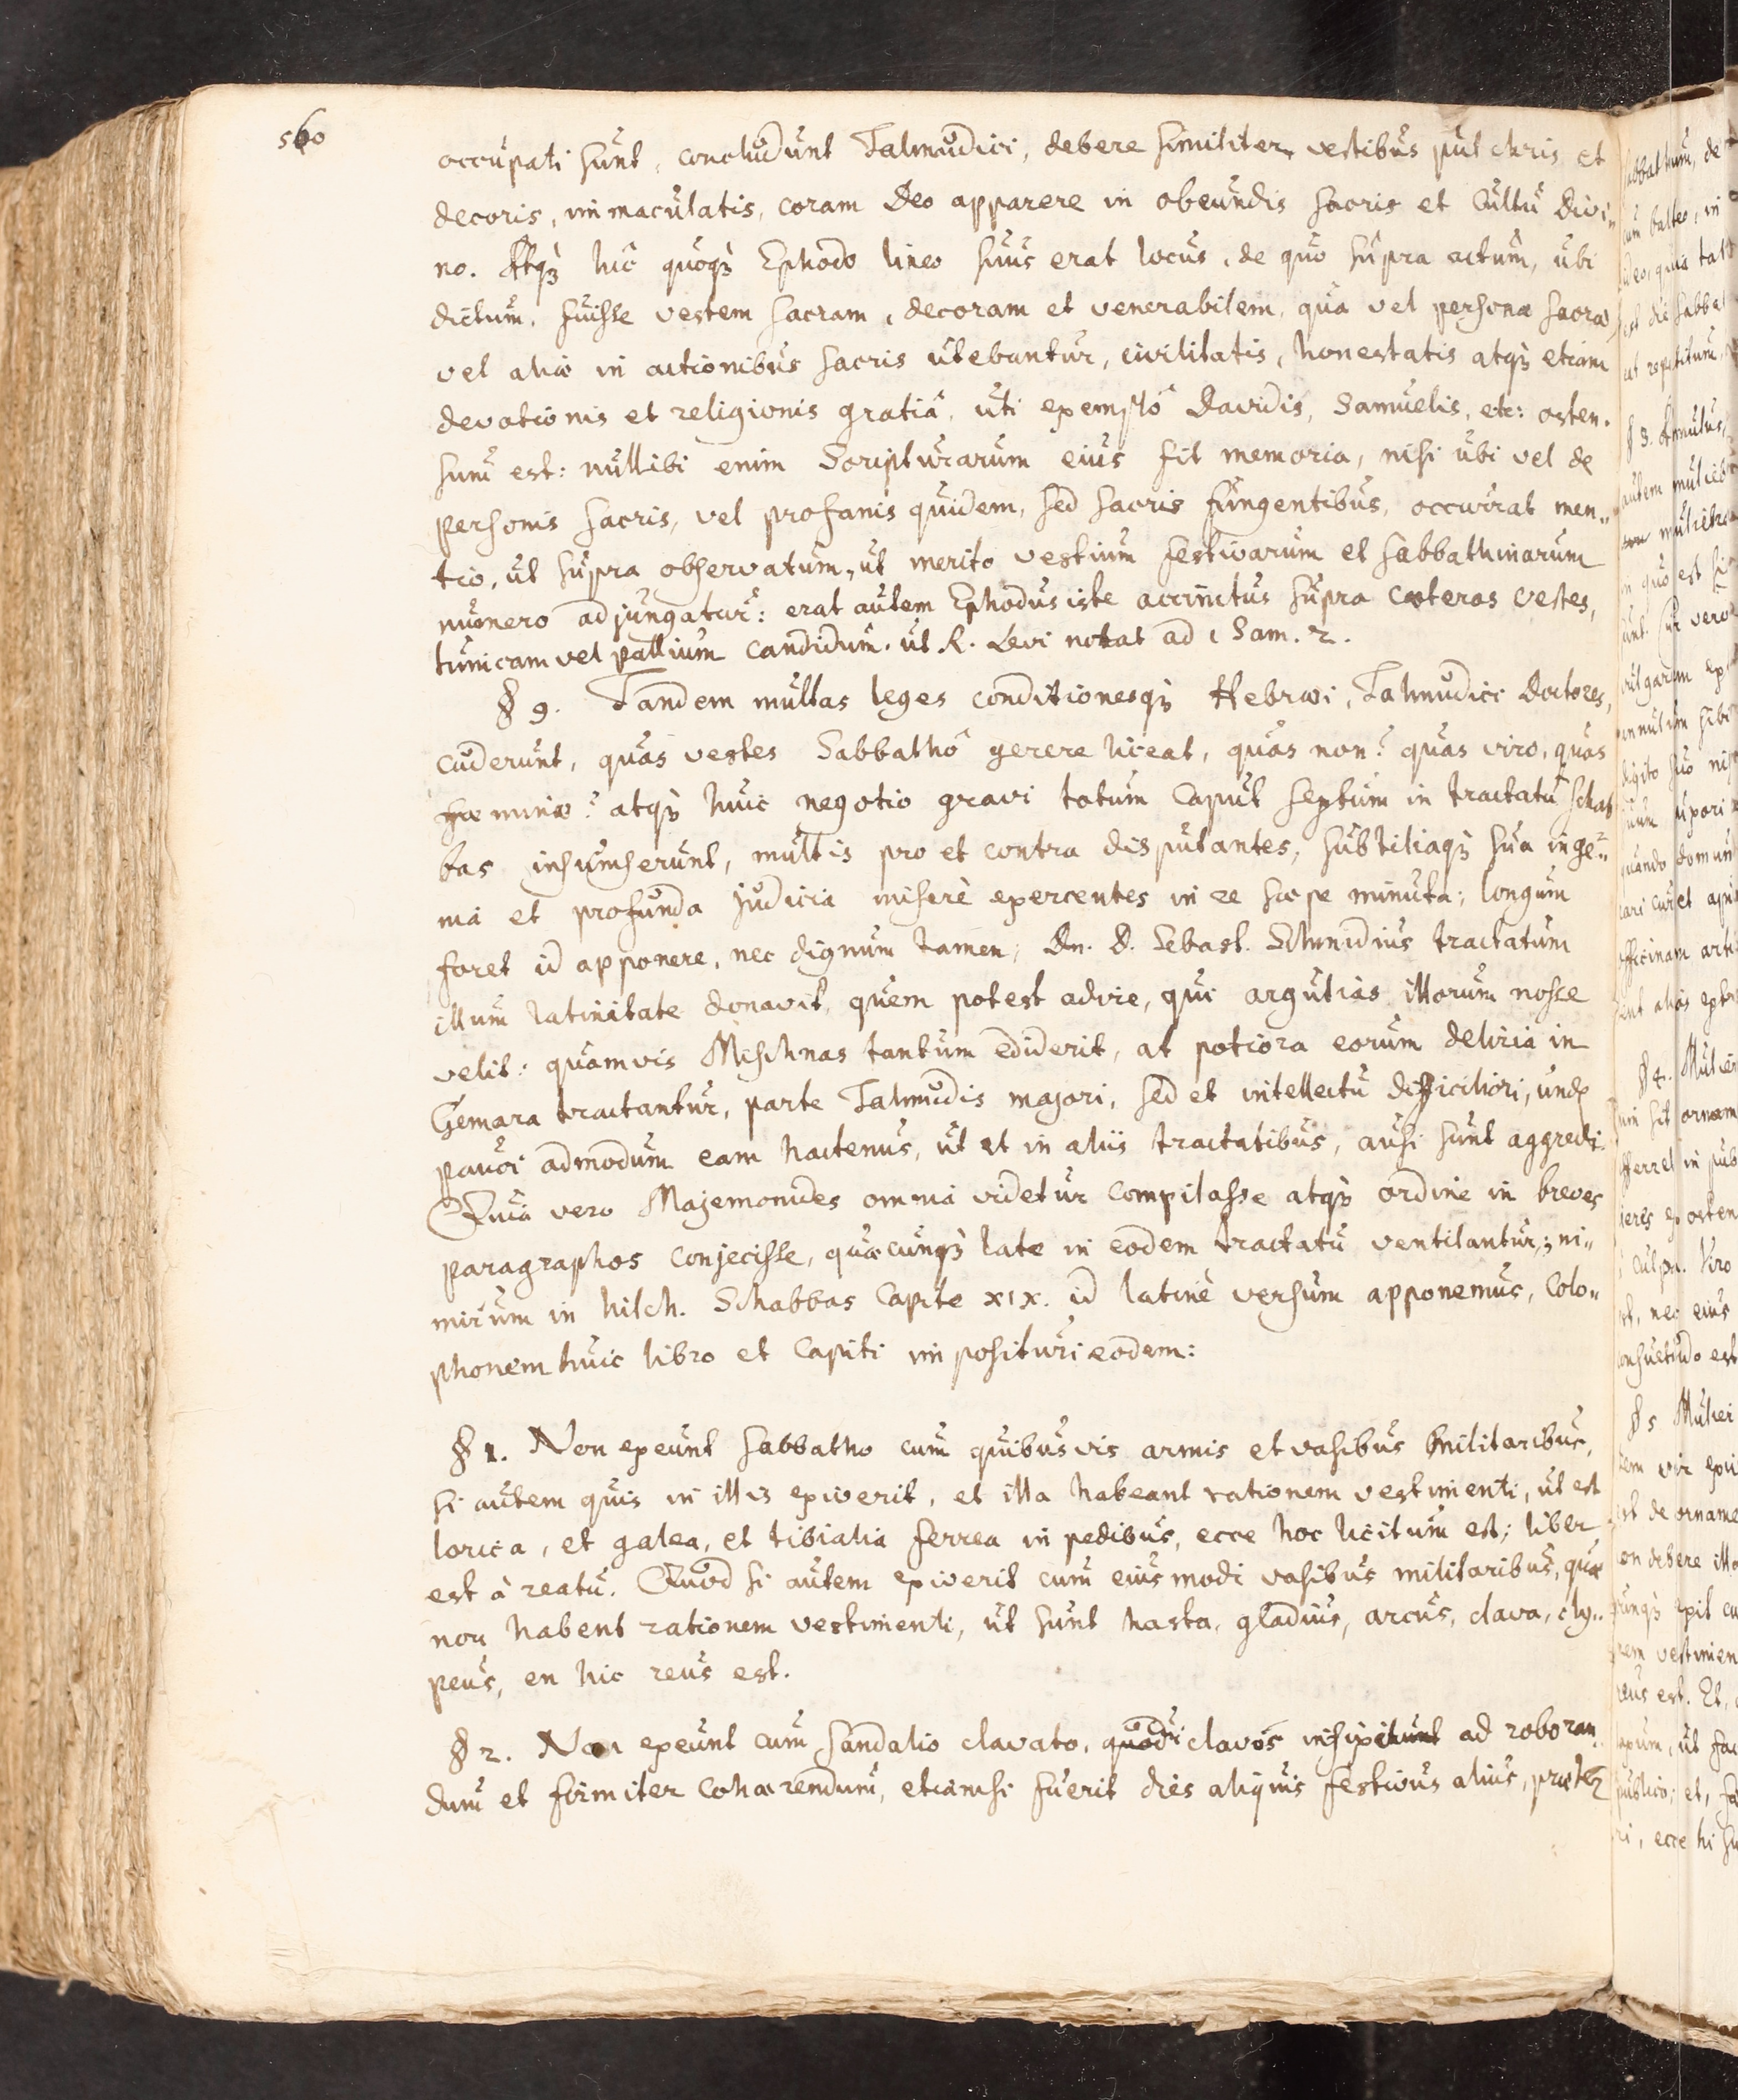 560
occupati sunt, concludunt Talmudici, debere similiter vestibus pulchris et
decoris, immaculatis, coram Deo apparere in obeundis sacris et Cultu Divi„
no. Atqȝ hîc quoqȝ Ephodo lineo suus erat locus, de quo supra actum, ubi
dictum, fuisse vestem sacram, decoram et venerabilem, qua vel personæ sacræ,
vel aliæ in actionibus sacris utebantur, civilitatis, honestatis atqȝ etiam
devotionis et religionis gratiâ, uti exemplô Davidis, Samuelis, etc: osten.
sum est: nullibi enim Scripturarum eius fit memoria, nisi ubi vel de
personis sacris, vel profanis quidem, sed sacris fungentibus, occurrat men„
tio, ut supra observatum, ut merito vestium festivarum et sabbathinarum
numero adjungatur: erat autem Ephodus iste accinctus supra cæteras vestes,
tunicam vel pallium candidum. ut R. Levi notat ad 1 Sam. 2.
§ 9. Tandem multas leges conditionesqȝ Hebræi, Talmudici Doctores,
cuderunt, quas vestes Sabbathô gerere liceat, quas non? quas viro, quas
fœminæ? atqȝ huic negotio gravi totum Caput sextum in tractatu schab
bas insumserunt, multis pro et contra disputantes, subtiliaqȝ sua inge„
nia et profunda judicia miserè exercentes in re sæpe minuta; longum
foret id apponere, nec dignum tamen; Dn. D. Sebast. Schmidius tractatum
illum latinitate donavit, quem potest adire, qui argutias illorum nosce
velit: quamvis Mischnas tantum ediderit, at potiora eorum deliria in
Gemara tractantur, parte Talmudis majori, sed et intellectu difficiliori, unde
pauci admodum eam hactenus, ut et in aliis tractatibus, ausi sunt aggredi.
Quia vero Majemonides omnia videtur compilasse atqȝ ordine in breves
paragraphos conjecisse, quæcunqȝ late in eodem tractatu ventilantur; ni„
mirum in hilch. Schabbas Capite XIX. id latinè versum apponemus, Colo„
phonem huic libro et Capiti imposituri eodem:
§ 1. Non exeunt sabbatho cum quibusvis armis et vasibus militaribus,
si autem quis in illis exiverit, et illa habeant rationem vestimenti, ut est
lorica, et galea, et tibialia ferrea in pedibus, ecce hoc licitum est; liber
est à reatu. Quod si autem exiverit cum eiusmodi vasibus militaribus, quæ
non habent rationem vestimenti, ut sunt hasta, gladius, arcus, clava, cly„
peus, en hic reus est.
§ 2. Non exeunt cum sandalio clavato, clavos ad roboran„
dum et firmiter cohærendum, etiamsi fuerit dies aliquis festivus alius, præter